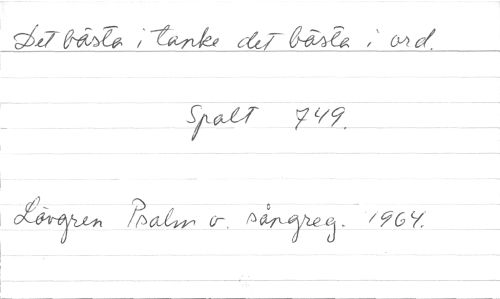 Det bästa i tanke det bästa i ord.
Spalt 749.
Lövgren Psalm o. sångreg. 1964.